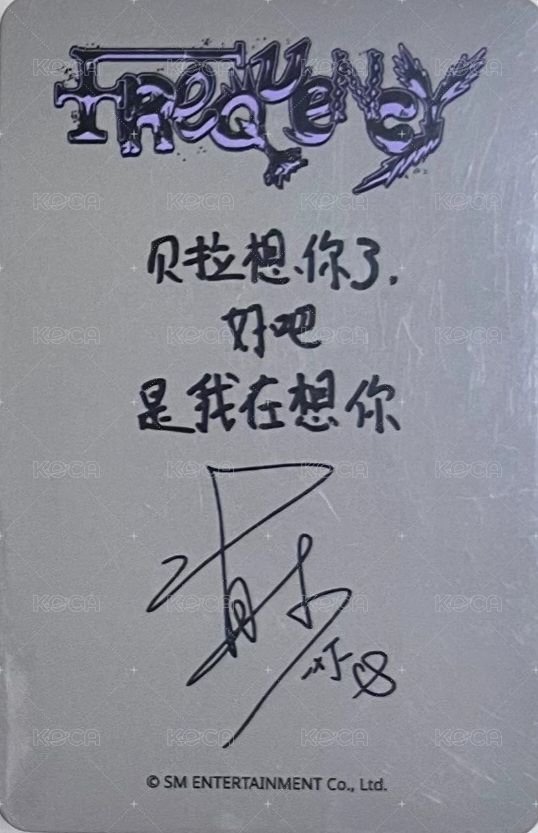 FREQUENCY
贝拉想你了.
好吧
是我在想你
© SM ENTERTAINMENT Co., Ltd.
KOCA